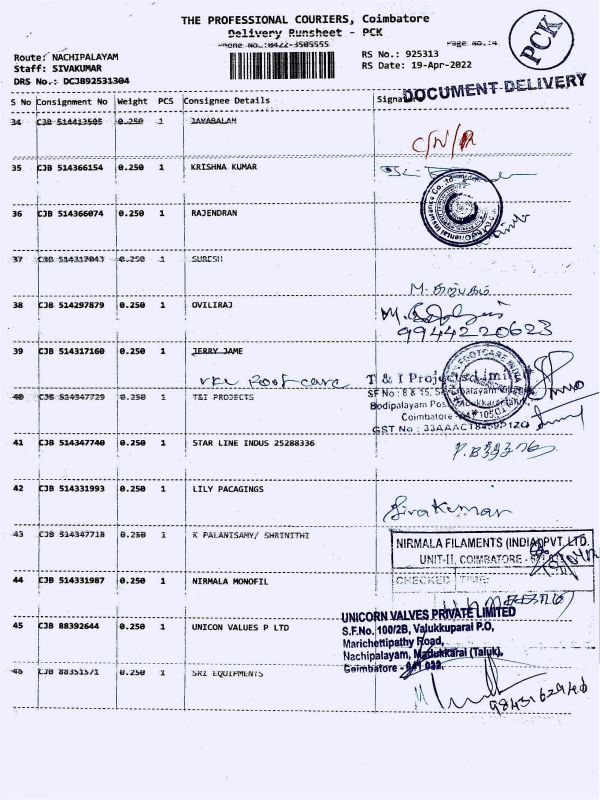 THE PROFESSIONAL COURIERS, Coimbatore
Delivery Runsheet - PCK
Phone No.:0422-3505555
Page No.:4
PCK
Route: NACHIPALAYAM
RS No.: 925313
Staff: SIVAKUMAR
RS Date: 19-Apr-2022
DRS No.: DCJB92531304
DOCUMENT DELIVERY
S No Consignment No Weight PCS Consignee Details Signature
34 CJB 514413505 0.250 1 JAYABALAN
C/N/R
35 CJB 514366154 0.250 1 KRISHNA KUMAR
36 CJB 514366074 0.250 1 RAJENDRAN
37 CJB 514317043 0.250 1 SURESH
38 CJB 514297879 0.250 1 OVILIRAJ
9944220623
39 CJB 514317160 0.250 1 JERRY JAME
VKL Footcare
T & I Projects Limited
40 CJB 514347729 0.250 1 T&I PROJECTS
SF No : 8 & 15,
Bodipalayam Post, Madukkarai Taluk,
Coimbatore - 641 105.
GST No : 33AAACT
41 CJB 514347740 0.250 1 STAR LINE INDUS 25288336
42 CJB 514331993 0.250 1 LILY PACAGINGS
Sivakumar
43 CJB 514347718 0.250 1 K PALANISAMY/ SHRINITHI
NIRMALA FILAMENTS (INDIA) PVT. LTD.
UNIT-II, COIMBATORE -
CHECKED TIME:
44 CJB 514331987 0.250 1 NIRMALA MONOFIL
45 CJB 88392644 0.250 1 UNICON VALUES P LTD
UNICORN VALVES PRIVATE LIMITED
S.F.No. 100/2B, Valukkuparai P.O,
Marichettipathy Road,
Nachipalayam, Madukkarai (Taluk),
Coimbatore - 641 032.
46 CJB 88351571 0.250 1 SRI EQUIPMENTS